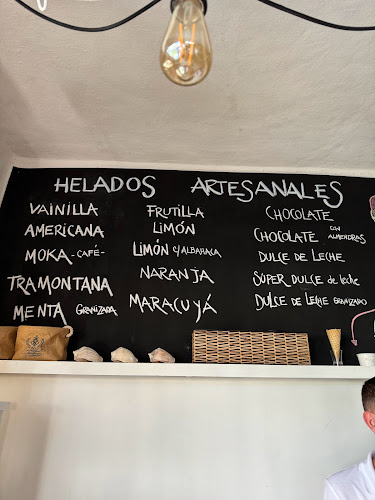 HELADOS ARTESANALES
VAINILLA
AMERICANA
MOKA -CAFÉ-
TRAMONTANA
MENTA GRANIZADA
FRUTILLA
LIMÓN
LIMÓN C/ALBAHACA
NARANJA
MARACUYÁ
CHOCOLATE
CHOCOLATE CON ALMENDRAS
DULCE DE LECHE
SÚPER DULCE de leche
DULCE DE LECHE GRANIZADO